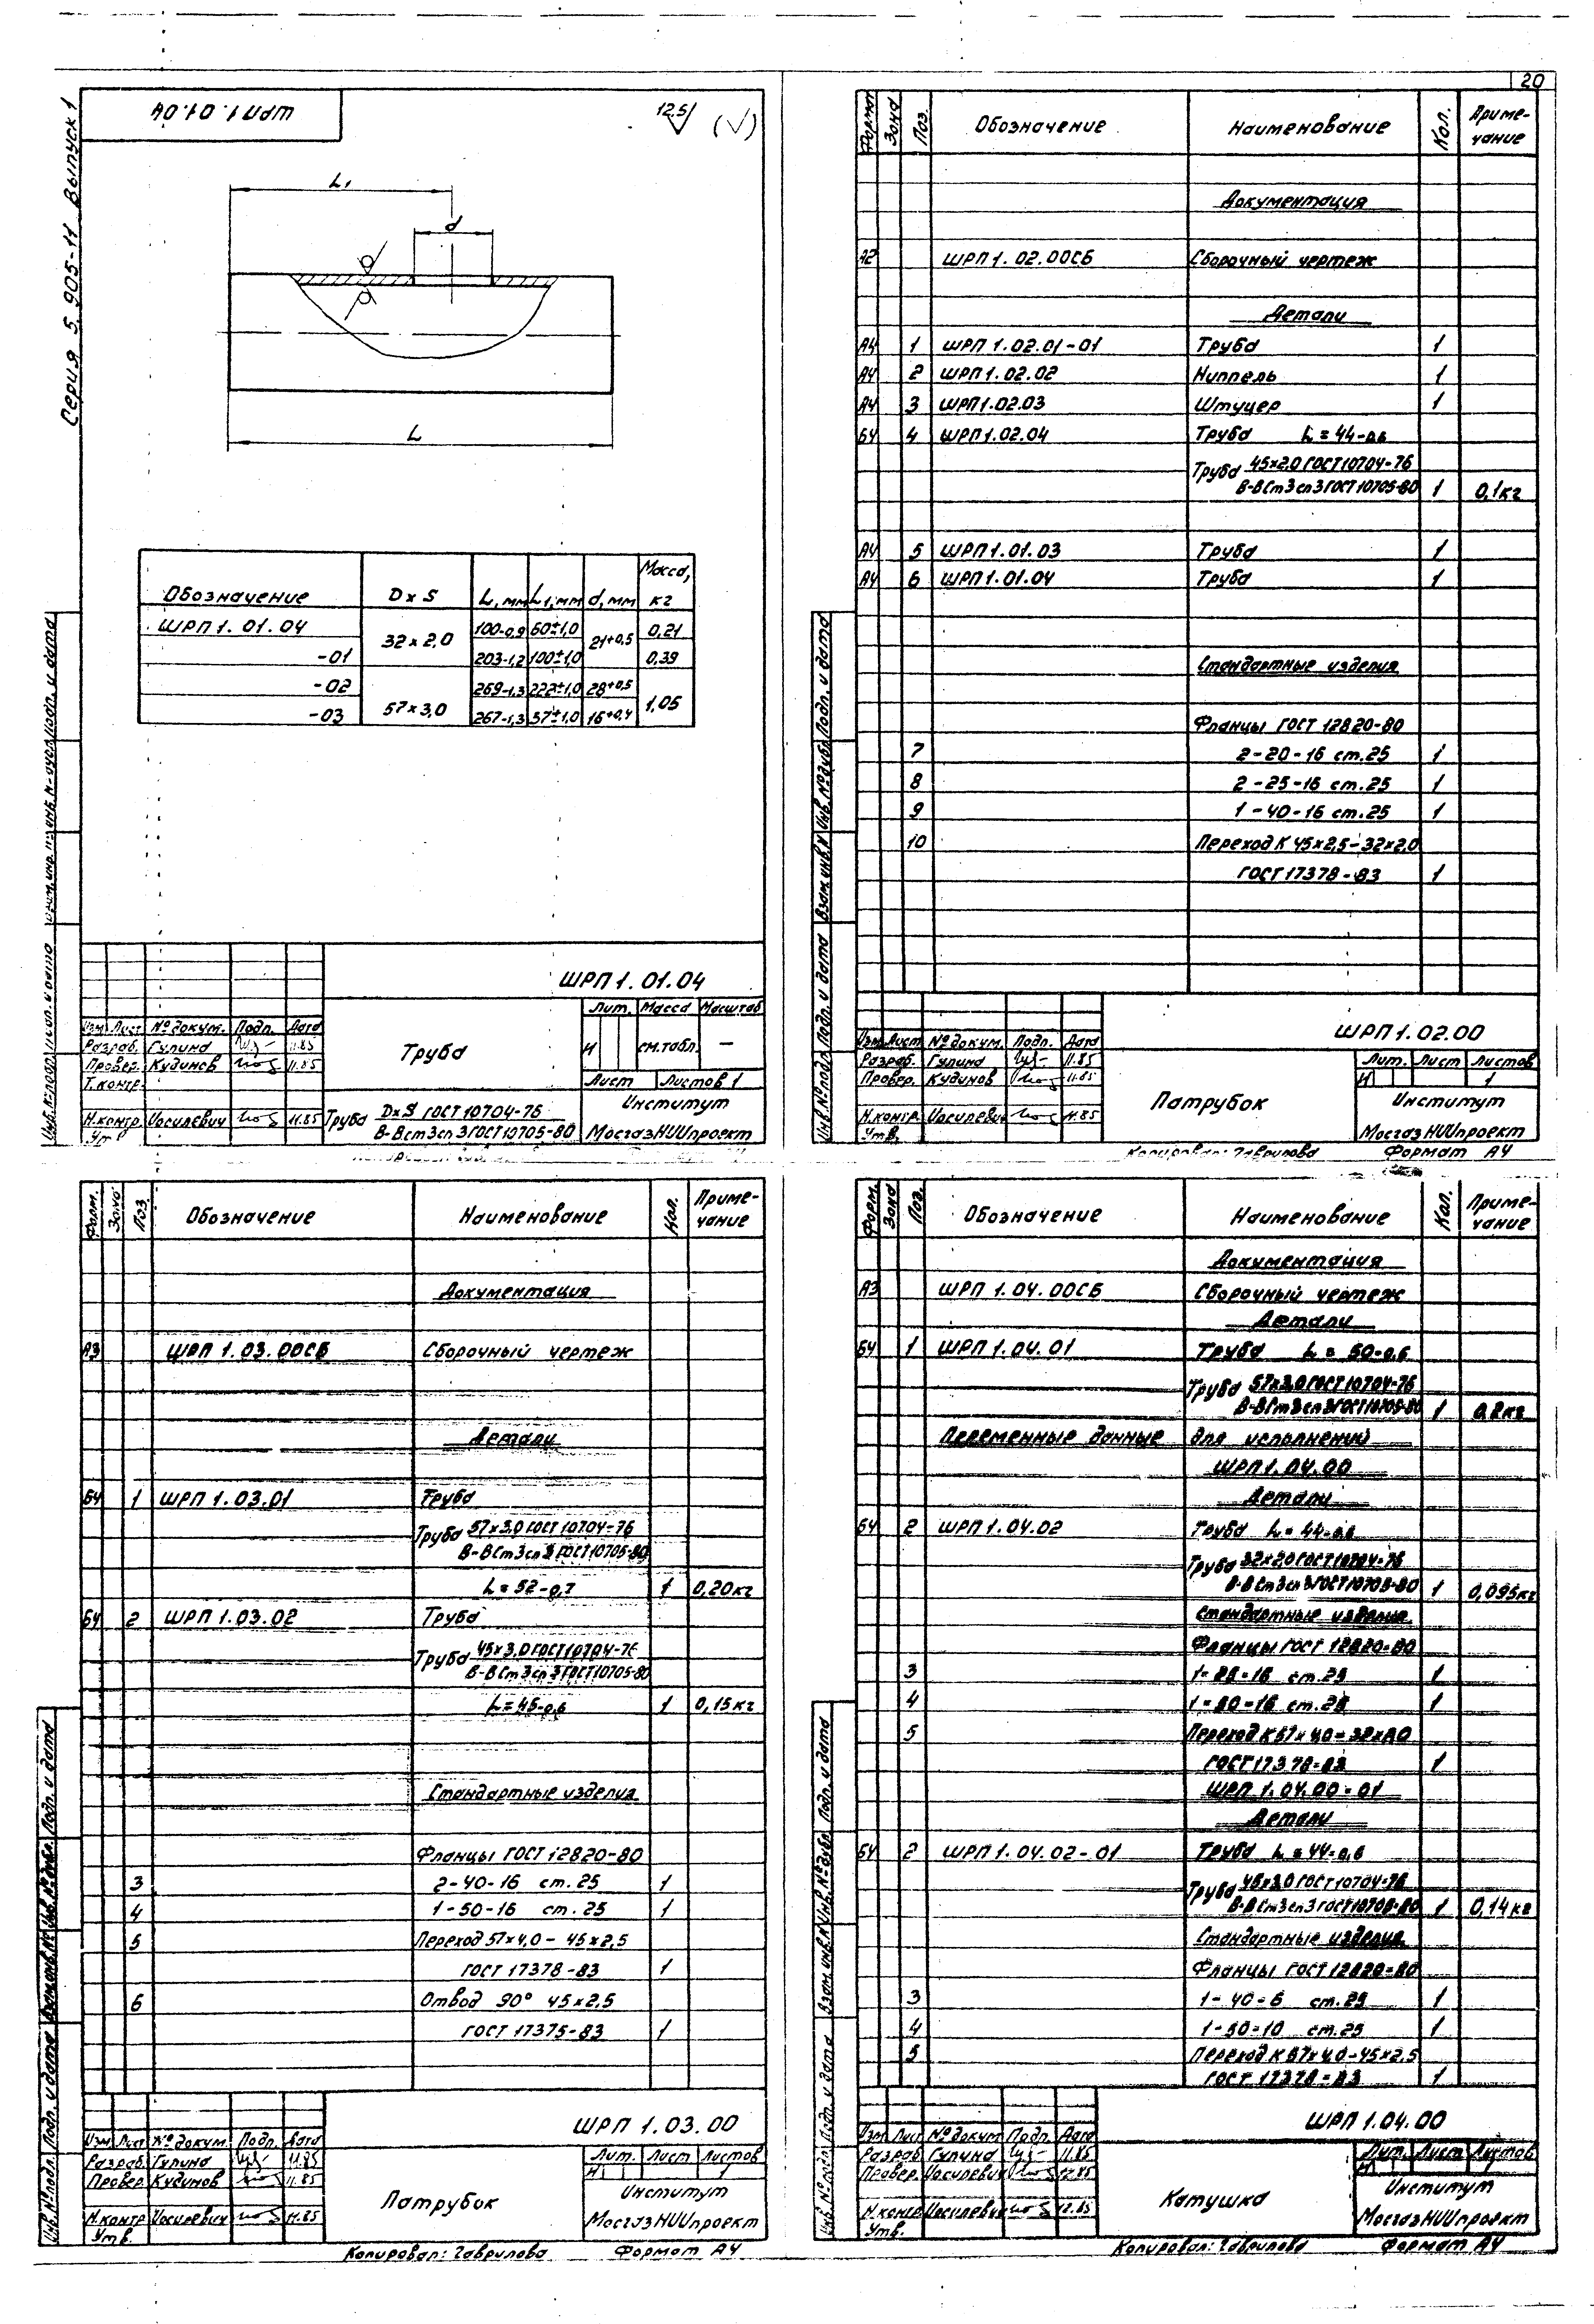 20
Серия 5.905-11 Выпуск 1
ШРП 1.01.04
12,5 (√)
L1
d
L
Обозначение D x S L, мм L1, мм d, мм Масса, кг
ШРП 1.01.04 32 x 2,0 100-0,9 60±1,0 21+0,5 0,21
-01 203-1,2 100±1,0 0,39
-02 57 x 3,0 269-1,3 222±1,0 28+0,5 1,05
-03 267-1,3 57±1,0 16+0,4
ШРП 1.01.04
Лит. Масса Масштаб
Изм Лист № докум. Подп. Дата
И см.табл. —
Разраб. Гулина 11.85
Провер. Кудинов 11.85
Т.контр.
Труба
Лист Листов 1
Н.контр. Иосилевич 11.85
Утв.
Труба DxS ГОСТ 10704-76
В-ВСт3сп3 ГОСТ 10705-80
Институт
МосгазНИИпроект
Инв.№ подл. Подп. и дата
Формат Зона Поз. Обозначение Наименование Кол. Примечание
Документация
А2 ШРП 1.02.00СБ Сборочный чертеж
Детали
А4 1 ШРП 1.02.01-01 Труба 1
А4 2 ШРП 1.02.02 Ниппель 1
А4 3 ШРП 1.02.03 Штуцер 1
БЧ 4 ШРП 1.02.04 Труба L=44-0,6
Труба 45x2,0 ГОСТ 10704-76
В-ВСт3сп3 ГОСТ 10705-80 1 0,1кг
А4 5 ШРП 1.01.03 Труба 1
А4 6 ШРП 1.01.04 Труба 1
Стандартные изделия
Фланцы ГОСТ 12820-80
7 2-20-16 ст.25 1
8 2-25-16 ст.25 1
9 1-40-16 ст.25 1
10 Переход К 45x2,5-32x2,0
ГОСТ 17378-83 1
Инв.№ подл. Подп. и дата Взам.инв.№ Инв.№ дубл. Подп. и дата
ШРП 1.02.00
Изм Лист № докум. Подп. Дата
Разраб. Гулина 11.85
Провер. Кудинов 11.85
Н.контр. Иосилевич 11.85
Утв.
Патрубок
Лит. Лист Листов
И 1
Институт
МосгазНИИпроект
Копировал: Гаврилова Формат А4
Форм. Зона Поз. Обозначение Наименование Кол. Примечание
Документация
А3 ШРП 1.03.00СБ Сборочный чертеж
Детали
БЧ 1 ШРП 1.03.01 Труба
Труба 57x3,0 ГОСТ 10704-76
В-ВСт3сп3 ГОСТ 10705-80
L=52-0,7 1 0,20кг
БЧ 2 ШРП 1.03.02 Труба
Труба 45x3,0 ГОСТ 10704-76
В-ВСт3сп3 ГОСТ 10705-80
L=46-0,6 1 0,15кг
Стандартные изделия
Фланцы ГОСТ 12820-80
3 2-40-16 ст.25 1
4 1-50-16 ст.25 1
5 Переход 57x4,0-45x2,5
ГОСТ 17378-83 1
6 Отвод 90° 45x2,5
ГОСТ 17375-83 1
Инв.№ подл. Подп. и дата Взам.инв.№ Инв.№ дубл. Подп. и дата
ШРП 1.03.00
Изм Лист № докум. Подп. Дата
Разраб. Гулина 11.85
Провер. Кудинов 11.85
Н.контр. Иосилевич 11.85
Утв.
Патрубок
Лит. Лист Листов
И 1
Институт
МосгазНИИпроект
Копировал: Гаврилова Формат А4
Форм. Зона Поз. Обозначение Наименование Кол. Примечание
Документация
А3 ШРП 1.04.00СБ Сборочный чертеж
Детали
БЧ 1 ШРП 1.04.01 Труба L=50-0,6
Труба 57x3,0 ГОСТ 10704-76
В-ВСт3сп3 ГОСТ 10705-80 1 0,2кг
Переменные данные для исполнений
ШРП 1.04.00
Детали
БЧ 2 ШРП 1.04.02 Труба L=44-0,6
Труба 32x2,0 ГОСТ 10704-76
В-ВСт3сп3 ГОСТ 10705-80 1 0,095кг
Стандартные изделия
Фланцы ГОСТ 12820-80
3 1-25-16 ст.25 1
4 1-50-16 ст.25 1
5 Переход К 57x4,0-32x2,0
ГОСТ 17378-83 1
ШРП 1.04.00-01
Детали
БЧ 2 ШРП 1.04.02-01 Труба L=44-0,6
Труба 45x3,0 ГОСТ 10704-76
В-ВСт3сп3 ГОСТ 10705-80 1 0,14кг
Стандартные изделия
Фланцы ГОСТ 12820-80
3 1-40-6 ст.25 1
4 1-50-10 ст.25 1
5 Переход К 57x4,0-45x2,5
ГОСТ 17378-83 1
Инв.№ подл. Подп. и дата Взам.инв.№ Инв.№ дубл. Подп. и дата
ШРП 1.04.00
Изм Лист № докум. Подп. Дата
Разраб. Гулина 11.85
Провер. Иосилевич 12.85
Н.контр. Иосилевич 12.85
Утв.
Катушка
Лит. Лист Листов
И 1
Институт
МосгазНИИпроект
Копировал: Гаврилова Формат А4